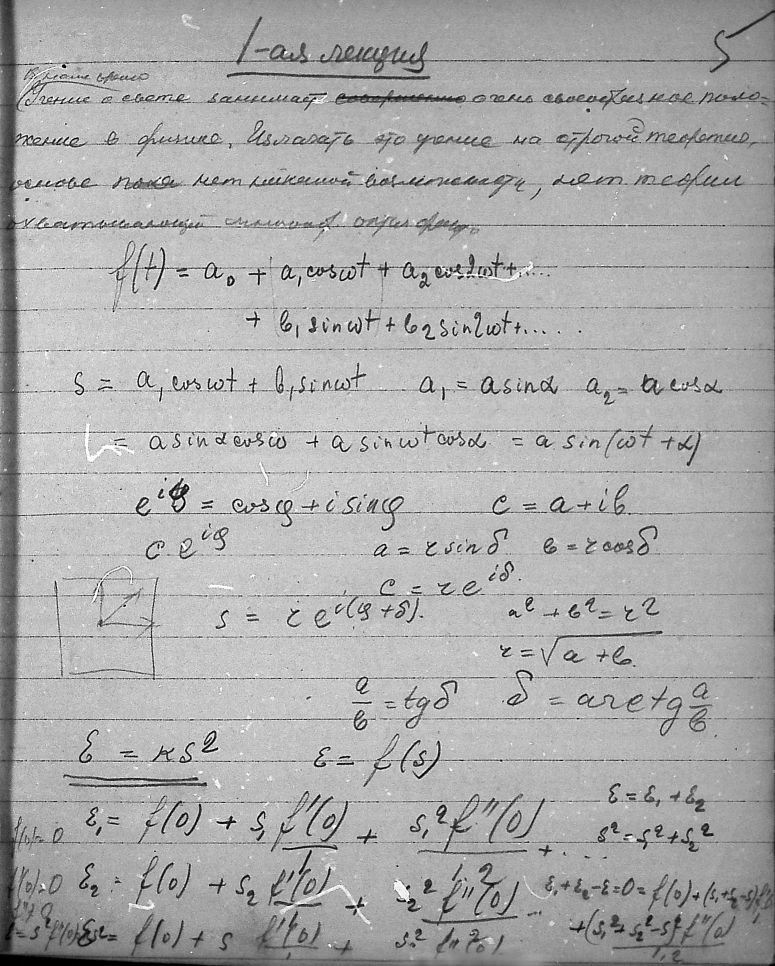 1-ая лекция
5
Учение о свете занимает совершенно очень своеобразное поло-
жение в физике. Излагать это учение на строгой теоретич.
основе пока нет никакой возможности, нет теории
охватывающей
f(t) = a₀ + a₁ cosωt + a₂ cos2ωt + .....
+ b₁ sinωt + b₂ sin2ωt + ......
s = a₁ cosωt + b₁ sinωt a₁ = a sinα a₂ = a cosα
= a sinα cosω + a sinωt cosα = a sin(ωt + α)
e^{iφ} = cosφ + i sinφ c = a + ib
c e^{iφ} a = r sinδ b = r cosδ
c = r e^{iδ}.
s = r e^{i(φ+δ)}. a² + b² = r²
r = √(a + b.)
a/b = tgδ δ = arctg a/b.
ε = κs² ε = f(s)
ε = ε₁ + ε₂
f(0) = 0 ε₁ = f(0) + s₁ f'(0)/1 + s₁² f''(0)/1.2 + ....
s² = s₁² + s₂²
f'(0) = 0 ε₂ = f(0) + s₂ f'(0)/1 + s₂² f''(0)/2 ...
ε₁ + ε₂ - ε = 0 = f(0) + (s₁ + s₂ - s) f'(0)
+ (s₁² + s₂² - s²) f''(0)/1.2
= f(0) + s f'(0)/1 + s² f''(0)